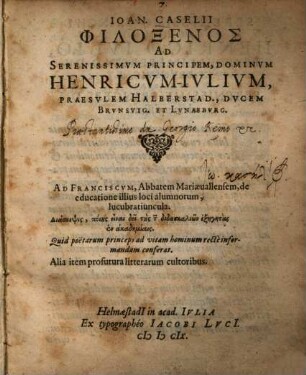 IOAN. CASELII
ΦΙΛΟΞΕΝΟΣ
AD
SERENISSIMVM PRINCIPEM, DOMINVM
HENRICVM-IVLIVM,
PRAESVLEM HALBERSTAD., DVCEM
BRVNSVIG. ET LVNAEBVRG.
AD FRANCISCVM, Abbatem Mariæuallensem, de
educatione illius loci alumnorum,
lucubratiuncula.
εἶναι δεῖ τὰς
ἐν ἀκαδημίαις.
Quid poëtarum princeps ad vitam hominum rectè infor-
mandam conferat.
Alia item profutura litterarum cultoribus.
HelmæstadI in acad. IVLIA
Ex typographéo IACOBI LVCI.
cIↃ IↃ cIx.